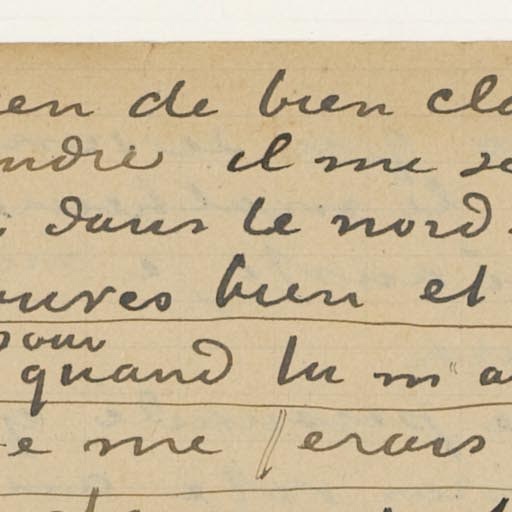 en de bien cl
ndre il me se
dans le nord
ouves bien et
pour
quand tu m'a
e me ferais